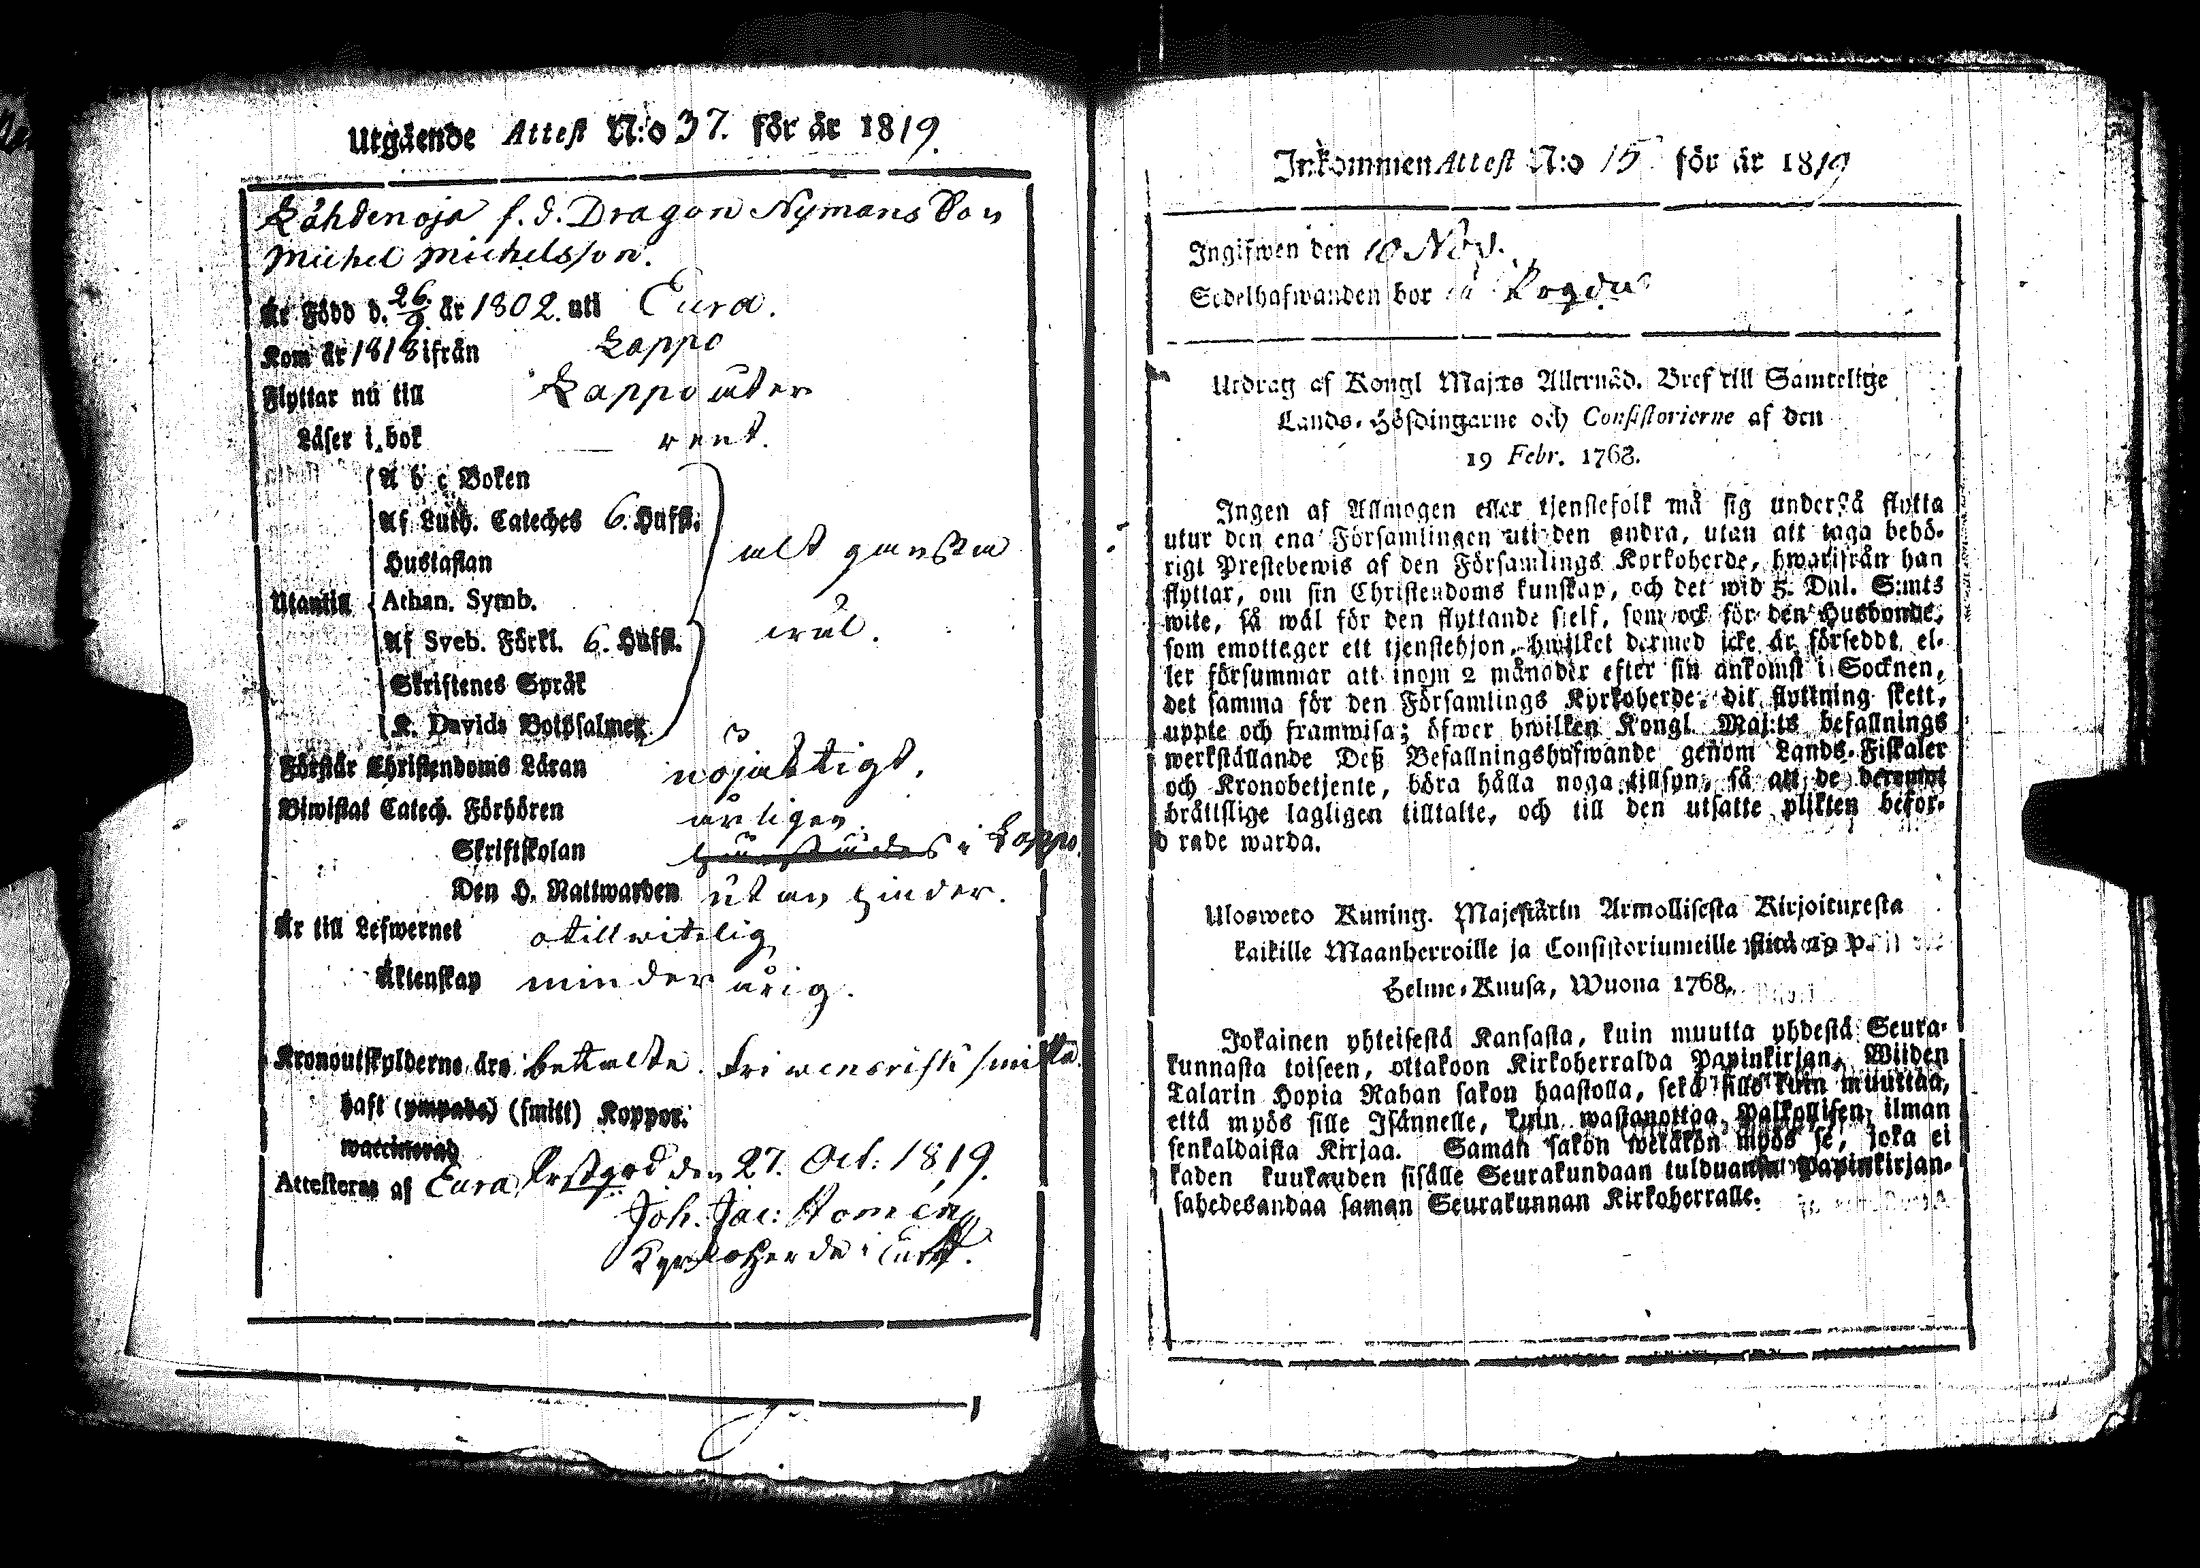 Utgående Attest N:o 37. för år 1819.
Lähdenoja f. d. Dragon Nymans Son
Michel Michelsson.
Är Född d. 26/9. år 1802. uti Eura.
Kom år 1818 ifrån Lappo
Flyttar nu till Lappo åter
Läser i bok rent.
A b c Boken
Af Luth. Cateches 6. Hufst.
Hustaflan
alt ganska
Utantill Athan. Symb.
wäl.
Af Sveb. Förkl. 6. Hufst.
Skriftenes Språk
K. Davids Botpsalmer
Förstår Christendoms Läran nöjaktigt.
Biwistat Catech. Förhören årligen.
Skriftskolan i Lappo.
Den H. Nattwarden utan hinder.
Är till Lefwernet otillwitelig
Äktenskap minderårig.
Kronoutskylderne äro betalte.
haft (ympade) (smitt) Koppor.
waccinerad
Attesteras af Eura Prestgård den 27. Oct: 1819.
Joh. Jac:
Kyrkoherde i
Inkommen Attest N:o 15 för år 1819
Ingifwen den 10 Nov.
Sedelhafwanden bor
Utdrag af Kongl Maj:ts Allernåd. Bref till Samtelige
Lands-Höfdingarne och Consistorierne af den
19 Febr. 1768.
Ingen af Allmogen eller tjenstefolk må sig understå flytta
utur den ena Församlingen uti den andra, utan att taga behö-
rigt Prestebewis af den Församlings Kyrkoherde, hwarifrån han
flyttar, om sin Christendoms kunskap, och det wid 5. Dal. S:mts
wite, så wäl för den flyttande sjelf, som ock för den Husbonde,
som emottager ett tjenstehjon, hwilket dermed icke är försedt, el-
ler försummar att inom 2 månader efter sin ankomst i Socknen,
det samma för den Församlings Kyrkoherde, dit flyttning skett,
uppte och framwisa; öfwer hwilken Kongl. Maj:ts befallnings
werkställande Deß Befallningshafwande genom Lands-Fiskaler
och Kronobetjente, böra hålla noga tillsyn, så att de deremot
bråttslige lagligen tilltalte, och till den utsatte plikten befor-
d rade warda.
Ulosweto Kuning. Majestätin Armollisesta Kirjoituxesta
kaikille Maanherroille ja Consistoriumeille siitä 19 p.
Helme-Kuusa, Wuona 1768.
Jokainen yhteisestä Kansasta, kuin muutta yhdestä Seura-
kunnasta toiseen, ottakoon Kirkoherralda Papinkirjan, Wiiden
Talarin Hopia Rahan sakon haastolla, sekä sille kuin muuttaa,
että myös sille Isännelle, kuin wastanottaa Palkollisen, ilman
senkaldaista Kirjaa. Saman sakon wetäkön myös se, joka ei
kaden kuukauden sisälle Seurakundaan tulduansa Papinkirjan-
sahedesandaa saman Seurakunnan Kirkoherralle.